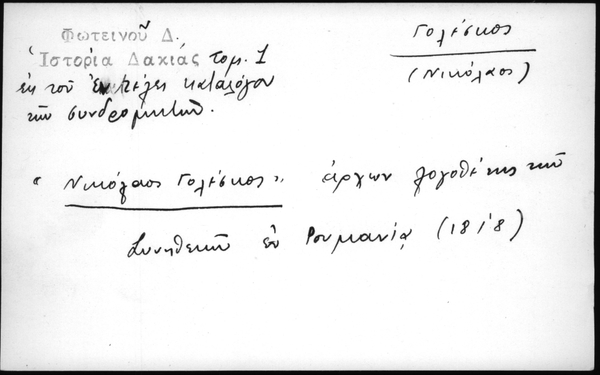 Φωτεινοῦ Δ.
Ἱστορία Δακιάς τομ. 1
ἐκ τοῦ ἐν τέλει καταλόγου
τῶν συνδρομητῶν.
Γολέσκος
(Νικόλαος)
"Νικόλαος Γολέσκος" ἄρχων λογοθέτης τῶν
Συνηθειῶν ἐν Ρουμανίᾳ (1818)